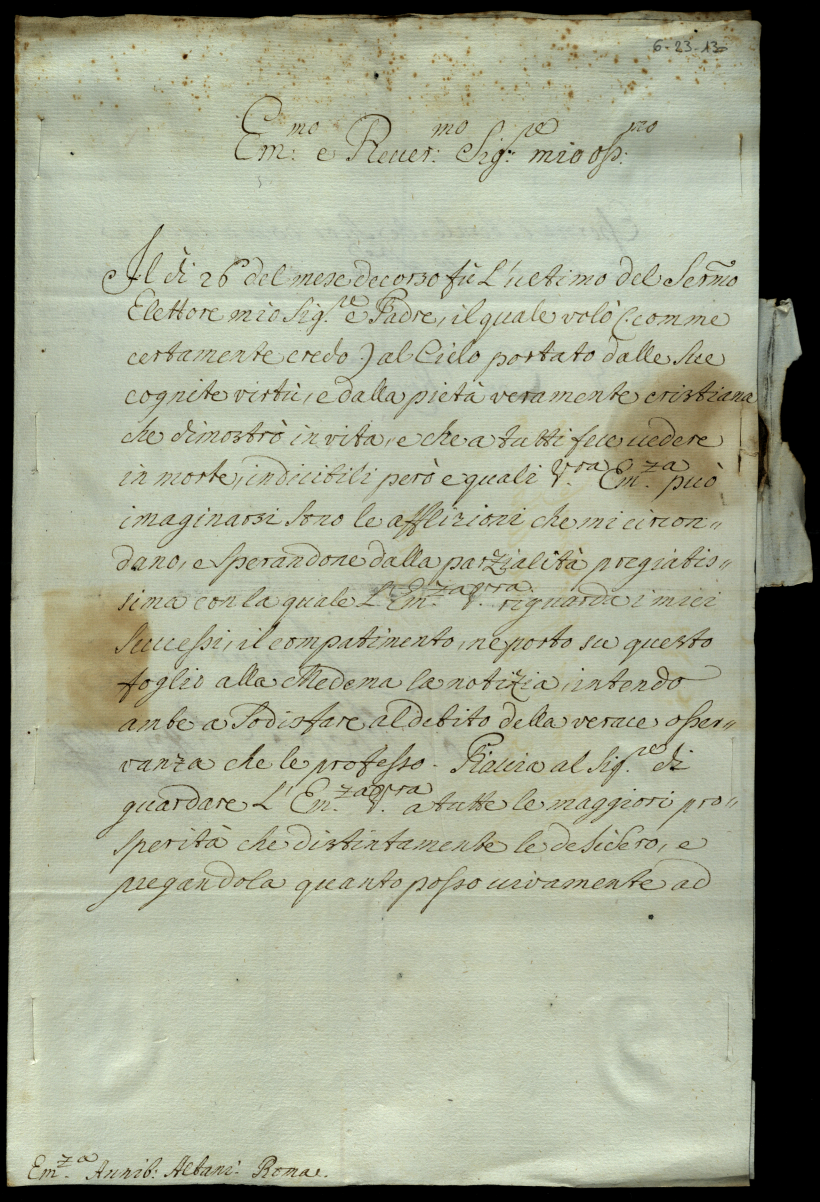 6-23-13
Em:mo e Reuer:mo Sig:re mio oss:mo
Il di 26 del mese decorso fù L'ultimo del Sermo
Elettore mio Sig.re e Padre, il quale volò (comme
certamente credo) al Cielo portato dalle sue
cognite virtù, e dalla pietà veramente cristiana
che dimostrò in vita, e che a tutti fece uedere
in morte, indicibili però e quali V.ra Em.za può
imaginarsi sono le afflizioni che mi circon=
dano, e sperandone dalla parzialità pregiatis=
sima con la quale L'Em.za V.ra riguarda i miei
successi, il compatimento, ne porto su questo
foglio alla Medema la notizia, intendo
ambe a sodisfare al debito della verace osser=
vanza che le professo. Piaccia al Sig.re di
guardare L'Em.za V.ra a tutte le maggiori pro=
sperità che distintamente le desidero, e
pregandola quanto posso uivamente ad
Em.za Annib: Albani: Roma.